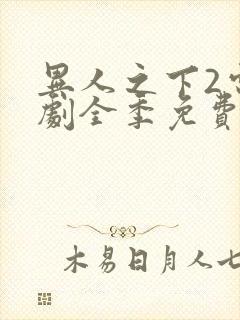 異人之下2
劇全季免費
木易日月人七